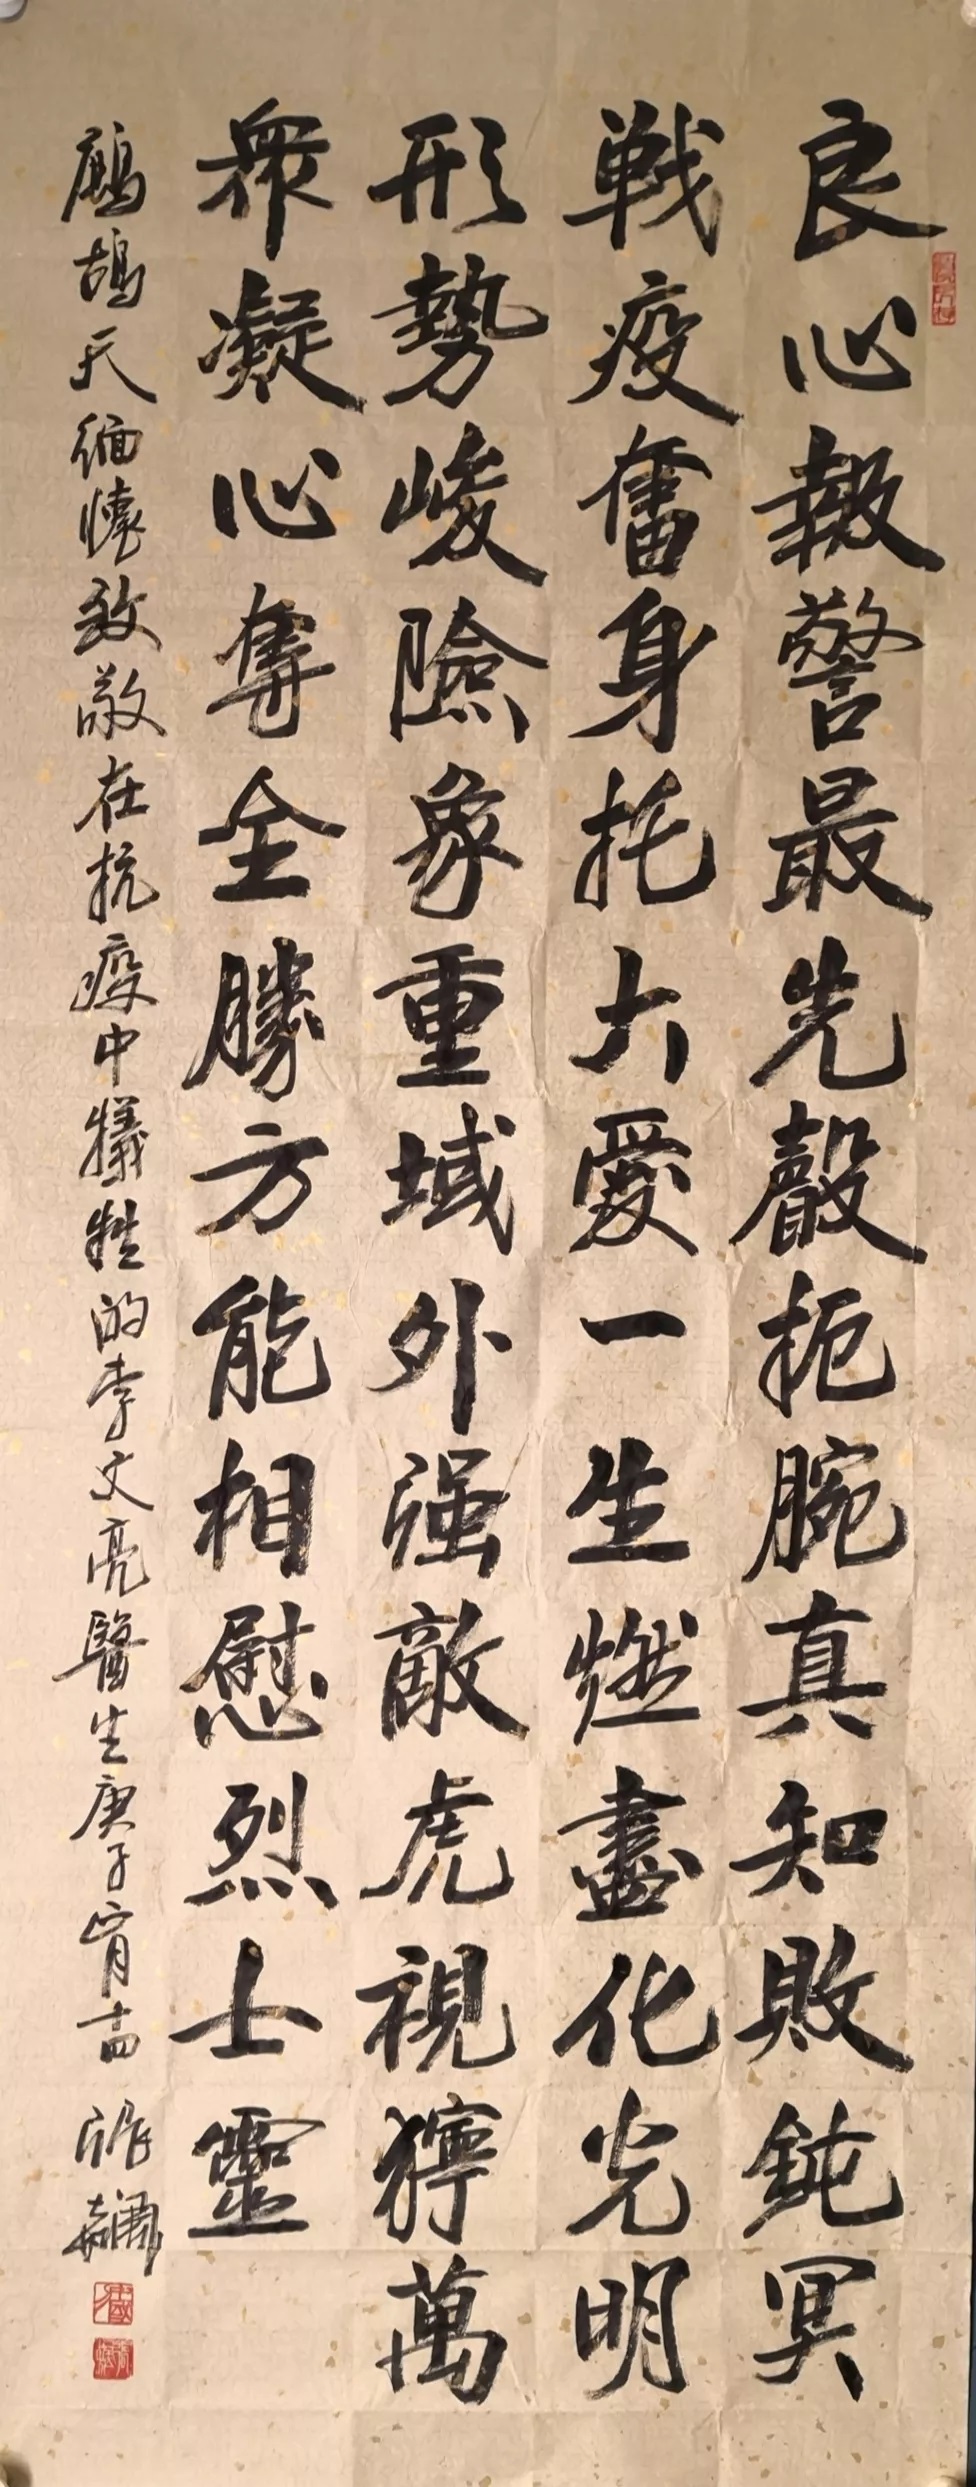 良心報警最先聲扼腕真知敗鈍冥
戦疫奮身托大愛一生燃盡化光明
形勢峻險象重域外强敵虎視獰萬
衆凝心奪全勝方能相慰烈士靈
鷓鴣天緬懷致敬在抗疫中犧牲的李文亮醫生庚子宵十四